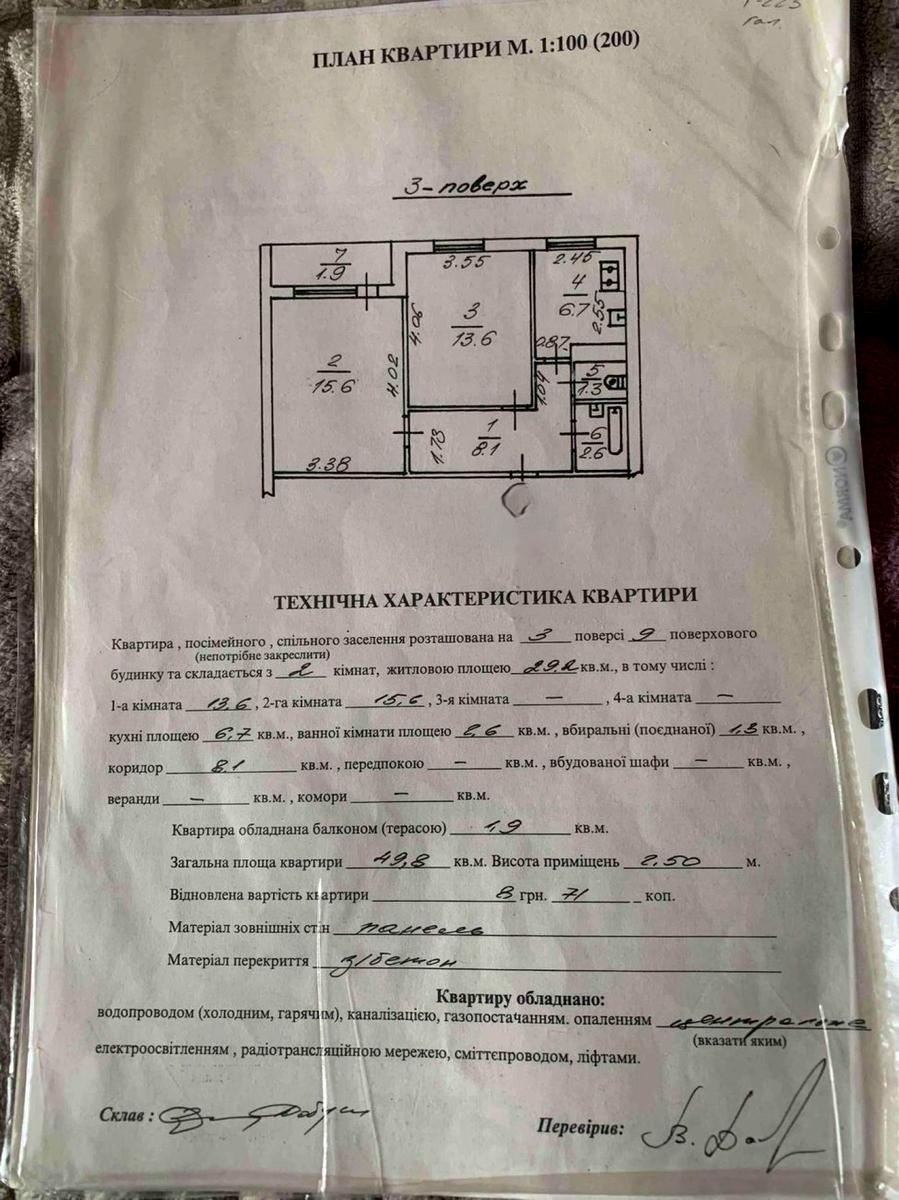 ПЛАН КВАРТИРИ М. 1:100 (200)
3-поверх
7
1.9
3.55
2.45
4
6.7
2.55
4.06
3
13.6
0.87
2
15.6
4.02
1.04
5
1.3
1.78
1
8.1
6
2.6
3.38
НОРМА
ТЕХНІЧНА ХАРАКТЕРИСТИКА КВАРТИРИ
Квартира , посімейного , спільного заселення розташована на 3 поверсі 9 поверхового
(непотрібне закреслити)
будинку та складається з 2 кімнат, житловою площею 29,2 кв.м., в тому числі :
1-а кімната 13,6 , 2-га кімната 15,6 , 3-я кімната — , 4-а кімната —
кухні площею 6,7 кв.м., ванної кімнати площею 2,6 кв.м. , вбиральні (поєднаної) 1,3 кв.м. ,
коридор 8.1 кв.м. , передпокою — кв.м. , вбудованої шафи — кв.м. ,
веранди — кв.м. , комори — кв.м.
Квартира обладнана балконом (терасою) 1,9 кв.м.
Загальна площа квартири 49,8 кв.м. Висота приміщень 2,50 м.
Відновлена вартість квартири 8 грн. 71 коп.
Матеріал зовнішніх стін панель
Матеріал перекриття з/бетон
Квартиру обладнано:
водопроводом (холодним, гарячим), каналізацією, газопостачанням. опаленням
(вказати яким)
електроосвітленням , радіотрансляційною мережею, сміттєпроводом, ліфтами.
Склав :
Перевірив: